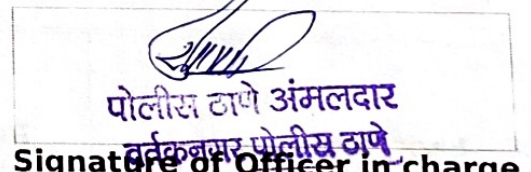 पोलीस ठाणे अंमलदार
वर्तकनगर पोलीस ठाणे
Signature of Officer in charge